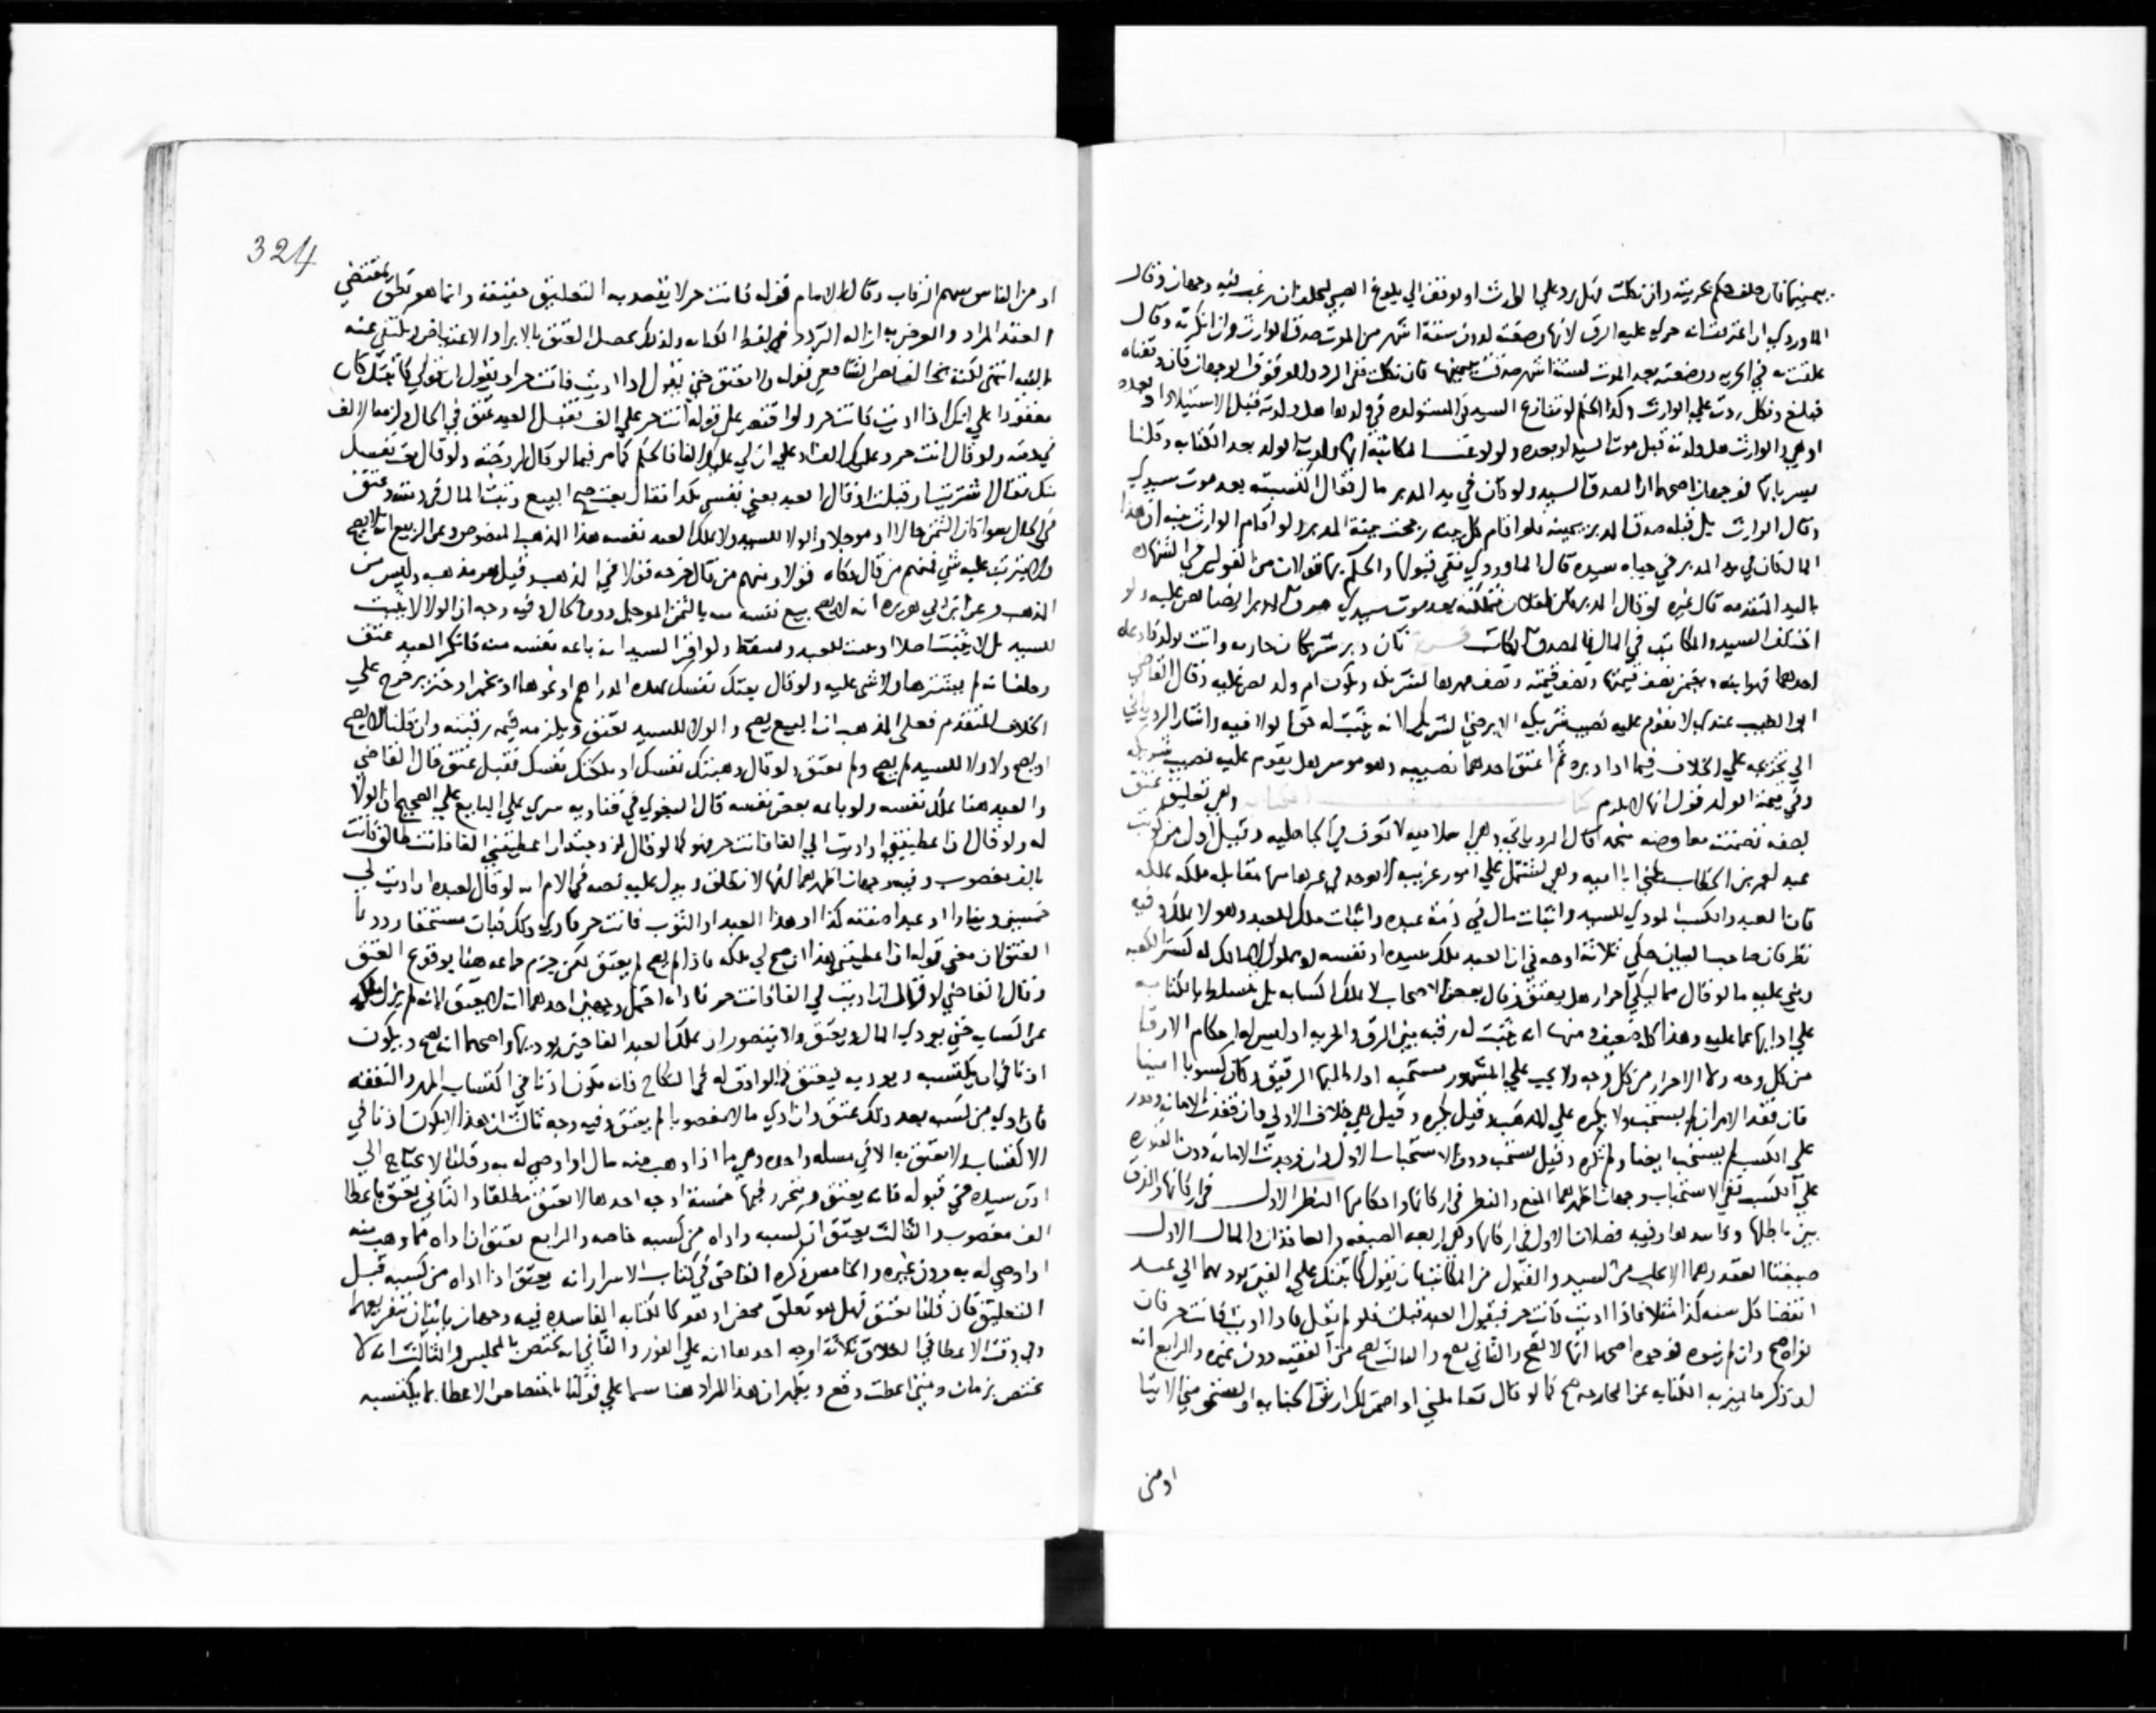 بيمينها فان حلف حكم بحريته وان نكلت فهل يرد علي الوارث او يوقف الي بلوغ الصبي ليحلف ان رغب فيه وجهان وقال
الماوردي ان اعترفت انه جري عليه الرق لانها وضعته لدون ستة اشهر من الموت صدق الوارث وان انكرته وقال
علقت به في الحرية ووضعته بعد الموت لستة اشهر صدقت بيمينها فان نكلت ففي الرد والوقوف الوجهان فان وقفناه
فبلغ ونكل ردت علي الوارث وكذا الحكم لو تنازع السيد في المستولدة في ولدها هل ولدته قبل الاستيلاد او بعده
او هي والوارث هل ولدته قبل موت السيد او بعده ولو ادعت المكاتبة انها ولدت الولد بعد الكتابة وقلنا
يسري اليه فوجهان اصحهما ان المصدق السيد ولو كان في يد المدبر مال فقال اكتسبته بعد موت سيدي
وقال الوارث بل قبله صدق المدبر بيمينه فلو اقام كل بينة رجحت بينة المدبر ولو اقام الوارث بينة ان هذا
المال كان في يد المدبر في حياة سيده قال الماوردي ففي قبولها والحكم بها قولان من القولين في الشهادة
باليد المتقدمة قال غيره لو قال المدبر كان لفلان فتملكته بعد موت سيدي صدق المدبر ايضا نص عليه ولو
اختلف السيد والمكاتب في المال فالمصدق المكاتب فرع كان دبر شريكان جارية واتت بولد فادعاه
احدهما فهو ابنه ويغرم نصف قيمتها ونصف قيمته ونصف مهرها لشريكه وتكون ام ولد نص عليه وقال القاضي
ابو الطيب عندي لا تقوم عليه نصيب شريكه الا برضي الشريك لانه ثبت له حق الولا فيه واشار الروياني
الي تخريجه علي الخلاف فيما اذا دبراه ثم اعتق احدهما نصيبه وهو موسر هل يقوم عليه نصيب شريكه
وفي قيمة الولد قول انها لا تلزم كتاب الكتابة وهي تعليق عتق
بصفة تضمنت معاوضة منجمة قال الروياني وهي اسلامية لا تعرف في الجاهلية وقيل اول من كوتب
عبد لعمر بن الخطاب يكنى ابا امية وهي تشتمل علي امور غريبة لا توجد في غيرها منها مقابلة ملكه بملكه
فان العبد والكسب المودي للسيد واثبات مال في ذمة عبده واثبات ملك للعبد وهو لا يملك وفيه
نظر فان صاحب البيان حكي ثلاثة اوجه في ان العبد ملك سيده او نفسه او مملوك لا مالك له كستر الكعبة
وبني عليه ما لو قال مماليكي احرار هل يعتق وقال بعض الاصحاب لا يملك اكسابه بل يتسلط بالكتابة
علي ادائها عما عليه وهذا كله ضعيف ومنها انه ثبت له رتبة بين الرق والحرية اذ ليس له احكام الارقا
من كل وجه ولا الاحرار من كل وجه ولا يجب علي المشهور مستحبة اذا طلبها الرقيق وكان كسوبا امينا
فان فقد الامران لم يستحب ولا يكره علي المذهب وقيل يكره وقيل هي خلاف الاولي فان فقدت الامانة وقدر
علي الكسب لم يستحب ايضا ولم تكره وقيل تستحب دون الاستحباب الاول وان وجدت الامانة دون القدرة
علي الكسب ففي الاستحباب وجهان اظهرهما المنع والنظر في اركانها واحكامها النظر الاول في اركانها والفرق
بين باطلها وفاسدها وفيه فصلان الاول في اركانها وهي اربعة الصيغة والعاقدان والمال الاول
صيغتا العقد وهما الايجاب من السيد والقبول من المكاتب بان يقول كاتبتك علي الفين تودهما الي عند
انقضا كل سنة كذا مثلا فاذا اديت فانت حر فيقول العبد قبلت فلو لم يقل فاذا اديت فانت حر فان
نواه صح وان لم ينوه فوجوه اصحها انها لا تصح والثاني تصح والثالث تصح من الفقيه دون غيره والرابع انه
لو ذكر ما يميز به الكتابة عن المخارجة صح كما لو قال تعاملني او اضمن لك ارش الجناية او تستحق مني الايتا
او من
324
او من الناس سهم الرقاب وقال الامام قوله فانت حر لا يقصد به التعليق حقيقة وانما هو نطق بمقتضي
العقد المراد والغرض به ازالة التردد في لفظ الكتابة ولذلك يحصل العتق بالابرا والاعتياض ولا يكتفي عنه
بالنية انتهي لكنه نحا القاص الشافعي قوله ولا يعتق حتي يقول اذا اديت فانت حر او يقول ان قولي كاتبتك كان
معقودا علي انك اذا اديت فانت حر ولو اقتصر علي قوله انت حر علي الف فقبل العبد عتق في الحال ولزمه الالف
في ذمته ولو قال انت حر وعليك الف او علي ان لي عليك الفا فالحكم كما مر فيما لو قال لزوجته ولو قال بعتك نفسك
بكذا فقال اشتريت او قبلت او قال العبد بعني نفسي بكذا فقال بعتك صح البيع وثبت المال في ذمته وعتق
في الحال سوا كان الثمن حالا او موجلا والولا للسيد ولا يملك العبد نفسه هذا المذهب المنصوص وعن الربيع انه لا يصح
ولا يترتب عليه شي فمنهم من قال حكاه قولا ومنهم من قال خرجه قولا في المذهب وقيل هو مذهبه وليس من
المذهب وعن ابن ابي هريرة انه لا يصح بيع نفسه منه بالثمن الموجل دون الحال وفيه وجه ان الولا لا يثبت
للسيد بل لا يثبت اصلا او يثبت للعبد وسقط ولو اقر السيد انه باعه نفسه منه فانكر العبد عتق
وحلف انه لم يشترها ولا شي عليه ولو قال بعتك نفسك بهذه الدراهم او نحوها او بخمر او خنزير خرج علي
الخلاف المتقدم فعلي المذهب ان البيع يصح والولا للسيد يعتق ويلزمه قيمة رقبته وان قلنا لا يصح
او يصح ولا ولا للسيد لم يصح ولم يعتق ولو قال وهبتك نفسك او ملكتك نفسك فقبل عتق قال القاضي
والعبد هنا يملك نفسه ولو باعه بعض نفسه قال البغوي في فتاويه سري علي البايع علي الصحيح ان الولا
له ولو قال اذا اعطيتني او اديت الي الفا فانت حر فهو كما لو قال لزوجته اذا اعطيتني الفا فانت طالق فاتت
بالف مغصوب وفيه وجهان اظهرهما انها لا تطلق ويدل عليه نصه في الام انه لو قال لعبده اذا اديت لي
خمسين دينارا او عبدا صفته كذا او هذا العبد او الثوب فانت حر فادي ذلك فبان مستحقا رد رد
العتق لان معني قوله اذا اعطيتني هذا ان صح لي ملكه فاذا لم يصح لم يعتق لكن جزم جماعة هنا بوقوع العتق
وقال القاضي لو قال اذا اديت لي الفا فانت حر فاداه احتمل وجهين احدهما انه لا يعتق لانه لم يزل ملكه
عن اكسابه حتي يودي المال ويعتق ولا يتصور ان يملك العبد الفا حتي يوديها واصحهما انه يصح ويكون
اذنا في ان يكتسبه ويوديه ليعتق كما لو اذن له في النكاح فانه يكون اذنا في اكتساب المهر والنفقة
فان ادي من كسبه بعد ذلك عتق وان ادي مالا مغصوبا لم يعتق وفيه وجه ثالث ان هذا لا يكون اذنا في
الاكتساب ولا يعتق به الا في مسالة واحدة وهي ما اذا وهب منه مال او اوصي له به وقلنا لا يحتاج الي
اذن سيده في قبوله فانه يعتق ويتحرر فيها خمسة اوجه احدها لا يعتق مطلقا والثاني يعتق باعطا
الف مغصوب والثالث يعتق ان كسبه واداه من كسبه خاصة والرابع يعتق ان اداه مما وهب منه
او اوصي له به دون غيره والخامس ذكره القاضي في كتاب الاسرار انه يعتق اذا اداه من كسبه قبل
التعليق فان قلنا يعتق فهل هو تعليق محض او هو كالكتابة الفاسدة فيه وجهان ياتيان بتفريعهما
وفي وقت الاعطا في الطلاق ثلاثة اوجه احدها انه علي الفور والثاني انه يختص بالمجلس والثالث انه لا
يختص بزمان ومتي اعطت وقع ويظهر ان هذا المراد هنا سيما علي قولنا باختصاص الاعطا بما يكتسبه